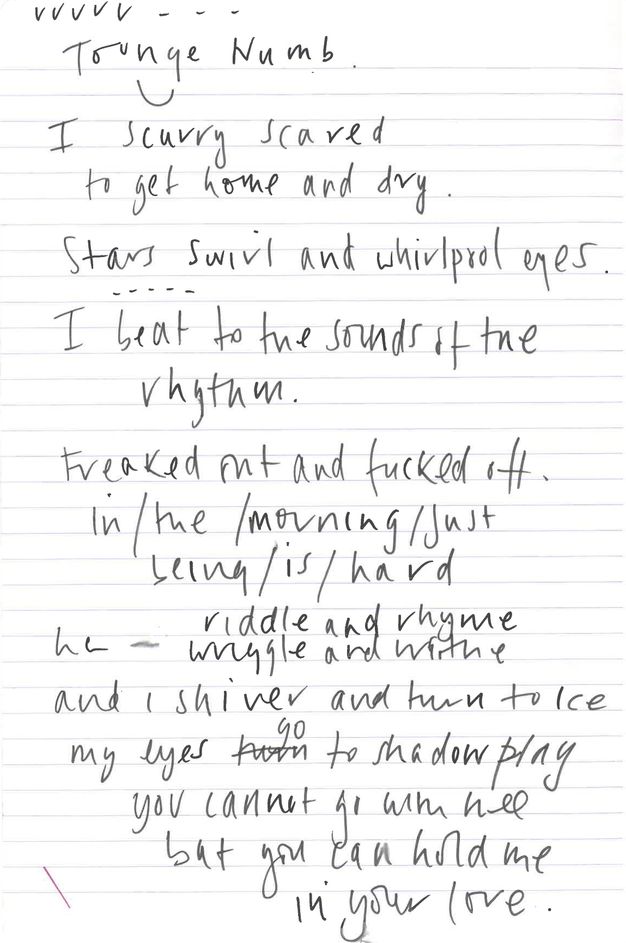 vvvvv - - - -
Tounge Numb.
I scurry scared
to get home and dry.
Stars swirl and whirlpool eyes.
I beat to the sounds of the
rhythm.
Freaked out and fucked off.
in/the/morning/just
being/is/hard
riddle and rhyme
he – wriggle and writhe
and i shiver and turn to Ice
go
my eyes turn to shadow play
you cannot go with me
but you can hold me
in your love.